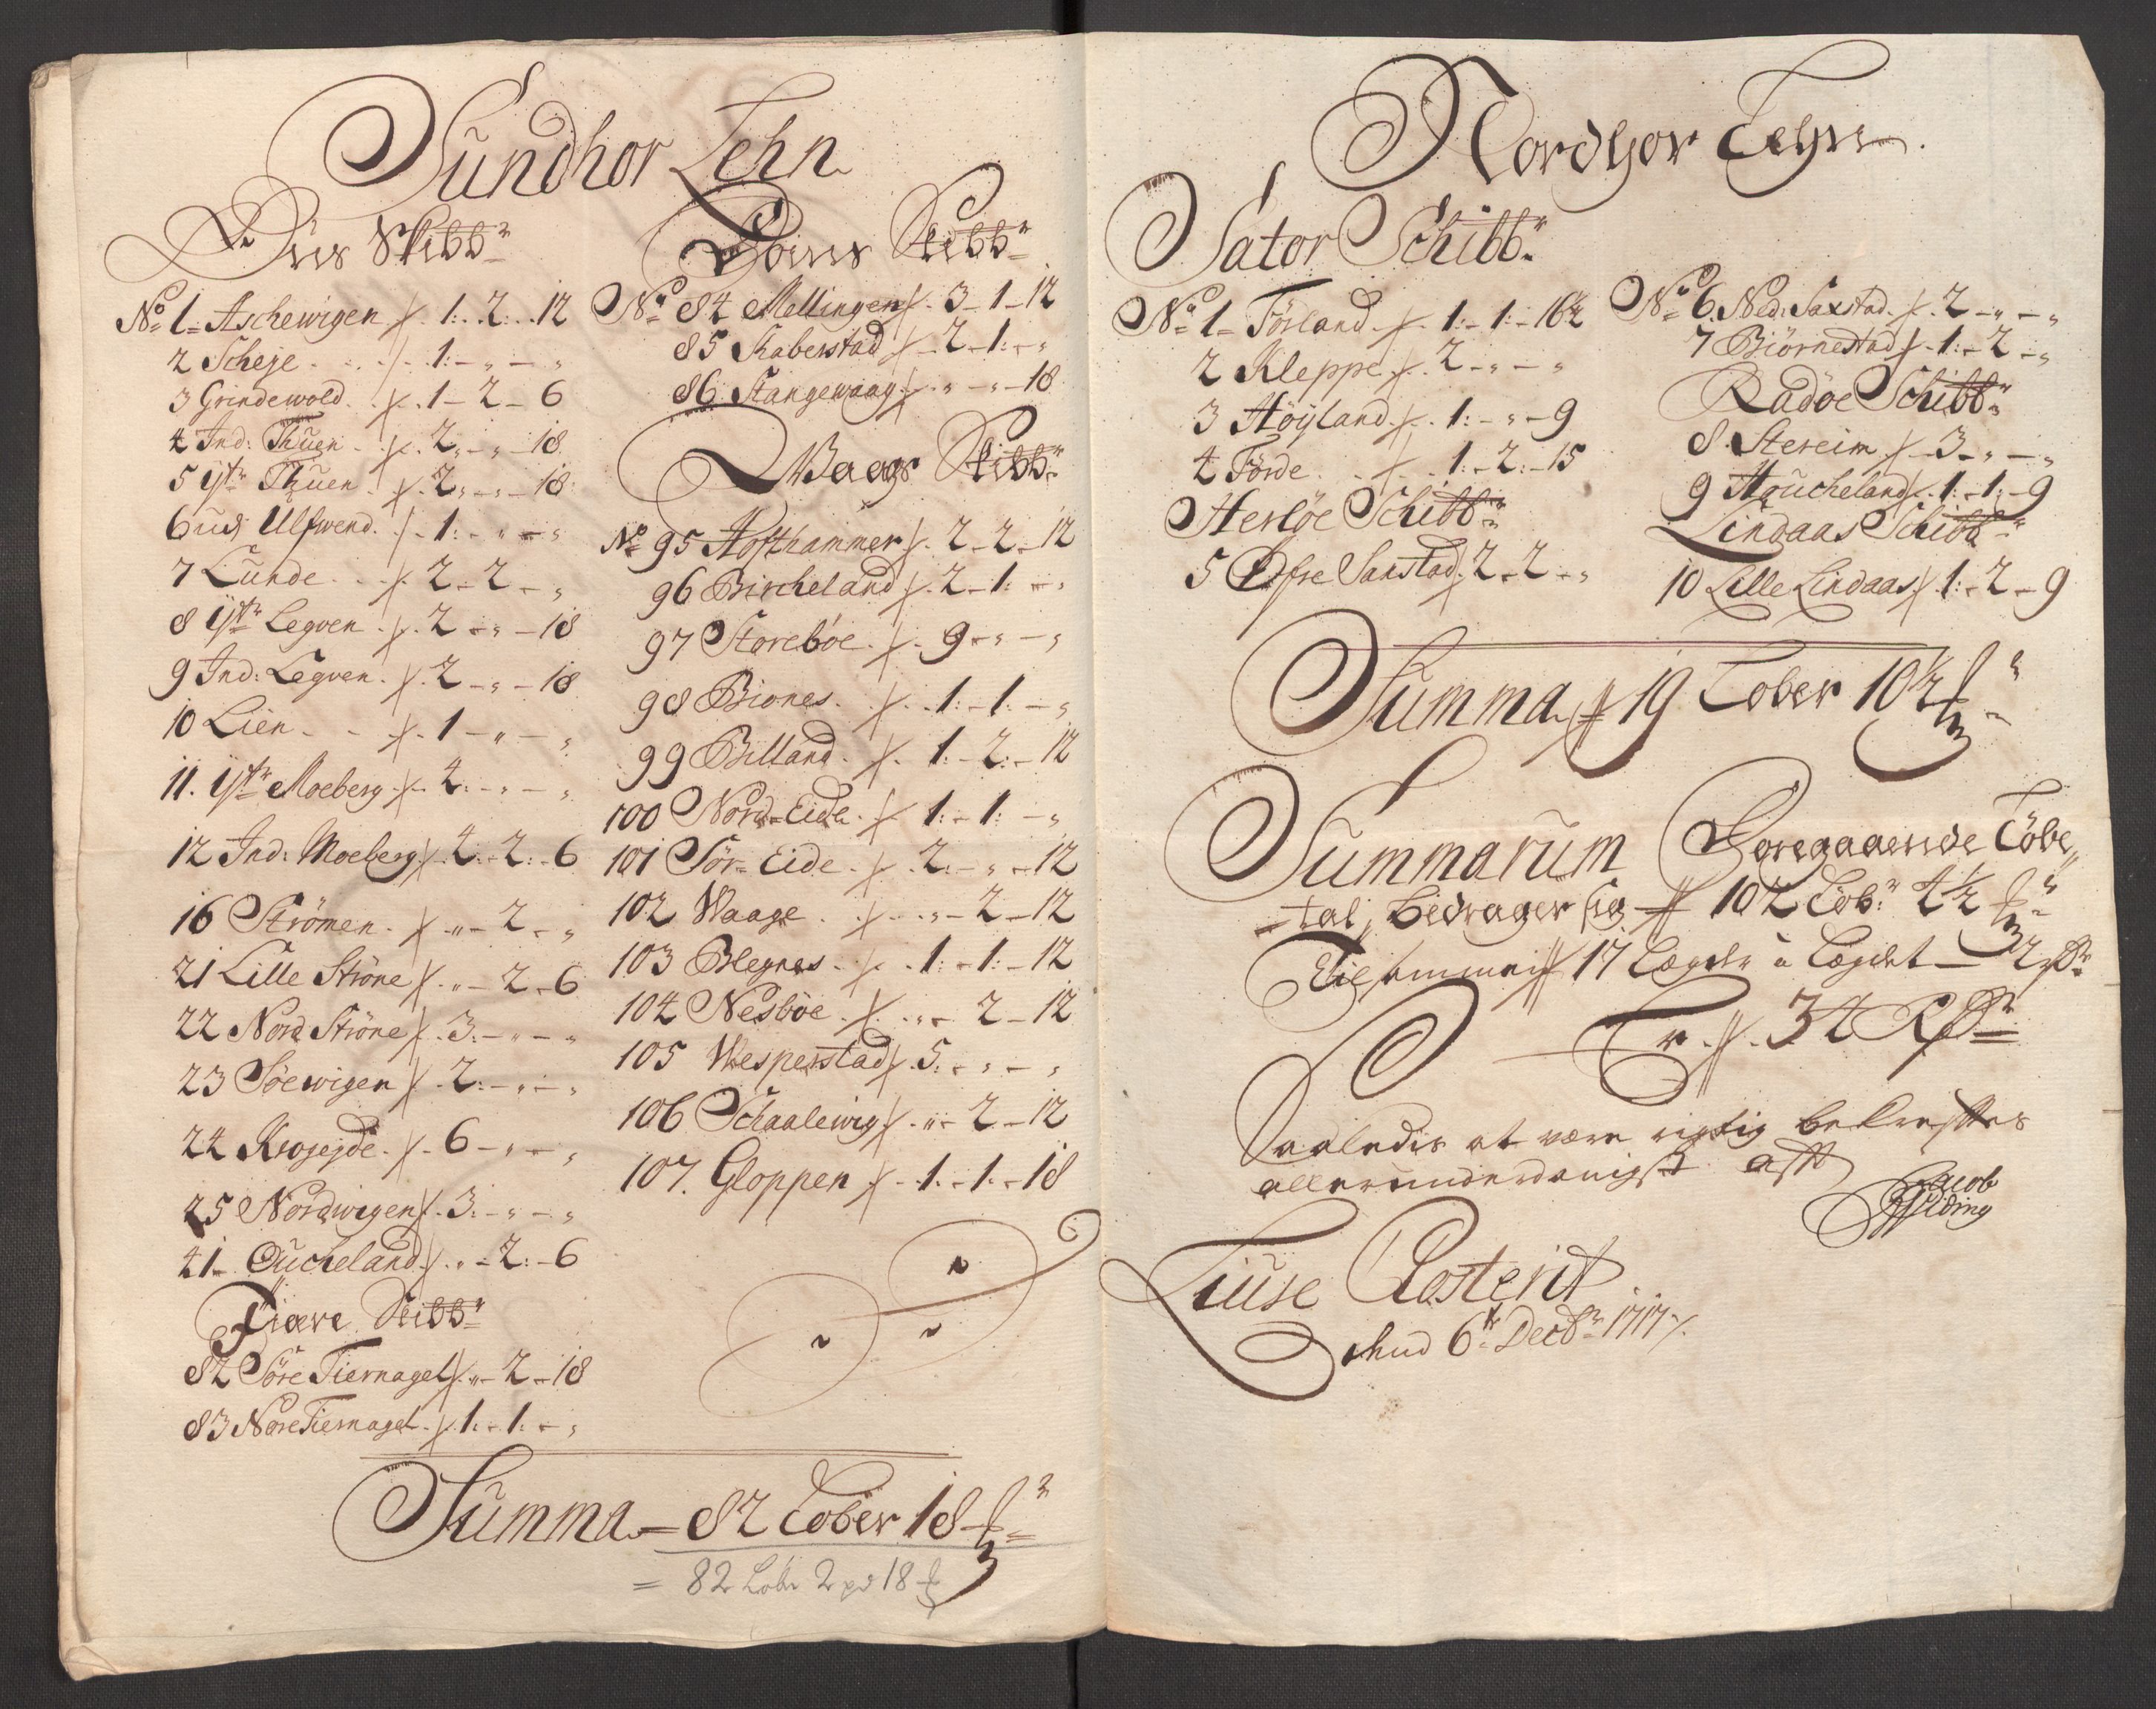 Sundhor Lehn
Øens Skibbr
No 1 Aschewigen 1: 2. 12
2 Scheje 1: - „ - „
3 Grindewold 1 - 2 - 6
4 Ind: Thuen 2 - „ - 18
5 Ytr Thuen 2 - „ - 18
6 Ulfwend 1: - „ - „
7 Lunde 2 - 2 - „
8 Ytr Legven 2 - „ - 18
9 Ind: Legven 2 - „ - 18
10 Lien 1 - „ - „
11. Ytr Moeberg 4 - „ - „
12 Ind: Moeberg 4 - 2: - 6
16 Strömen „ - 2 - „
21 Lille Ströne „ - 2 - 6
22 Nord Ströne 3: - „ - „
23 Söewigen 2: - „ - „
24 Krogejde 6 - „ - „
25 Nordwigen 3: - „ - „
41 Oucheland „ - 2: - 6
Fiære Skibbr
82 Söre Tiernagel „ - 2 - 18
83 Nore Tiernagel 1: - 1: - „
Skibbr
No 84 Mellingen 3 - 1 - 12
85 Skaberstad 2 - 1: - „
86 Stangewaag „ - „ - 18
Waags Skibbr
No 95 Hofthammer 2 - 2 - 12
96 Bircheland 2 - 1: - „
97 Storebøe 9 - „ - „
98 Biones 1: - 1: - „
99 Billand 1: - 2: - 12
100 Nord-Eide 1: - 1: - „
101 Sör-Eide 2: - „ - 12
102 Waage „ - 2 - 12
103 Blegnes 1: - 1: - 12
104 Nesböe „ - 2 - 12
105 Wesperstad 5: - „ - „
106 Schaalewig „ - 2 - 12
107. Gloppen 1: - 1: - 18
Summa = 82 Løber 18
= 82 Løber 2 pd 18
Nordhor Lehn
Sator Schibbr
No 1 Förland 1: - 1: - 16½
2 Kleppe 2 - „ - „
3 Höyland 1: - „ - 9
4 Förde 1: - 2: - 15
Herløe Schibbr
5 Øfre Saxstad 2 - 2 - „
No 6 Ned: Saxstad 2 - „ - „
7 Biörnestad 1: - 2 - „
Radöe Schibbr
8 Stereim 3 - „ - „
9 Houcheland 1: - 1: - 9
Lindaas Schibbr
10 Lille Lindaas 1: - 2 - 9
Summa 19 Løber 10½
Summarum Foregaaende Löbe„
tal, bedrager sig 102 Löbr 4½
Tilsammen 17 Lægder à Lægdet 2 Rdr
Er 34 Rdr
Saaledis at være rigtig bekreftes
allerunderdanigst aff
Jacob
Liuse Closterit
dend 6te Decbr 1717